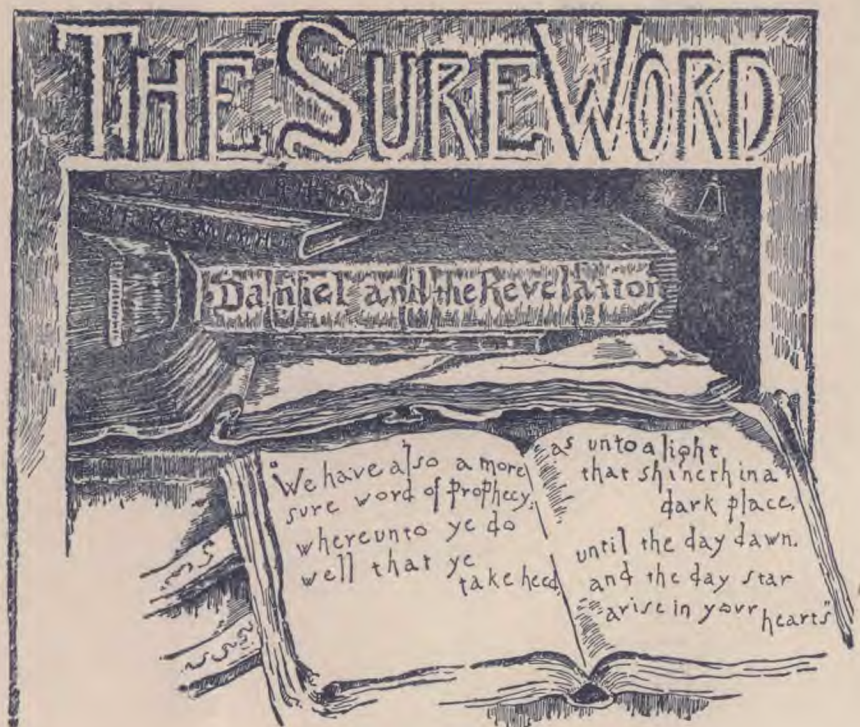 THE SURE WORD
Daniel and the Revelation
"We have also a more
sure word of Prophecy;
whereunto ye do
well that ye
take heed,
as unto a light
that shineth in a
dark place,
until the day dawn,
and the day star
arise in your hearts"